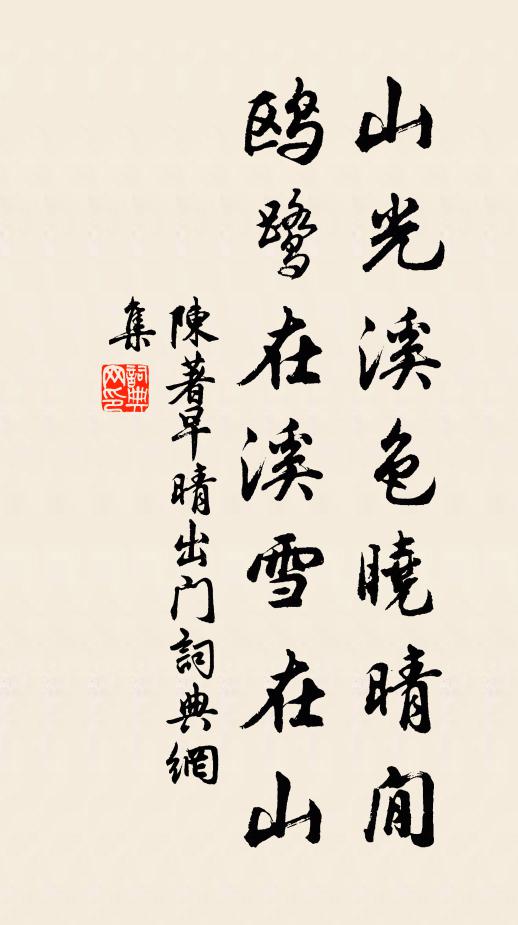 山光溪色曉晴間
鸥鹭在溪雪在山
陳著早晴出门詞典網
集
詞典
网印